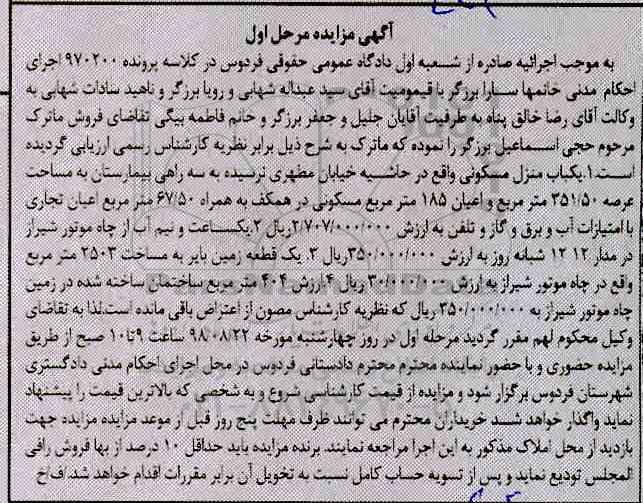 آگهی مزایده مرحل اول
به موجب اجرائیه صادره از شعبه اول دادگاه عمومی حقوقی فردوس در کلاسه پرونده ۹۷۰۲۰۰ اجرای
احکام مدنی خانمها سارا برزگر با قیمومیت آقای سید عبداله شهابی و رویا برزگر و ناهید سادات شهابی به
وکالت آقای رضا خالق پناه به طرفیت آقایان جلیل و جعفر برزگر و خانم فاطمه بیگی تقاضای فروش ماترک
مرحوم حجی اسماعیل برزگر را نموده که ماترک به شرح ذیل برابر نظریه کارشناس رسمی ارزیابی گردیده
است.۱.یکباب منزل مسکونی واقع در حاشیه خیابان مطهری نرسیده به سه راهی بیمارستان به مساحت
عرصه ۳۵۱/۵۰ متر مربع و اعیان ۱۸۵ متر مربع مسکونی در همکف به همراه ۶۷/۵۰ متر مربع اعیان تجاری
با امتیازات آب و برق و گاز و تلفن به ارزش ۲/۷۰۷/۰۰۰/۰۰۰ریال ۲.یکساعت و نیم آب از چاه موتور شیراز
در مدار ۱۲ ۱۲ شبانه روز به ارزش ۳۵۰/۰۰۰/۰۰۰ریال ۳. یک قطعه زمین بایر به مساحت ۲۵۰۳ متر مربع
واقع در چاه موتور شیراز به ارزش ۳۰/۰۰۰/۰۰۰ ریال ۴.ارزش ۴۰۴ متر مربع ساختمان ساخته شده در زمین
چاه موتور شیراز به ۳۵۰/۰۰۰/۰۰۰ ریال که نظریه کارشناس مصون از اعتراض باقی مانده است.لذا به تقاضای
وکیل محکوم لهم مقرر گردید مرحله اول در روز چهارشنبه مورخه ۹۸/۰۸/۲۲ ساعت ۹تا۱۰ صبح از طریق
مزایده حضوری و با حضور نماینده محترم محترم دادستانی فردوس در محل اجرای احکام مدنی دادگستری
شهرستان فردوس برگزار شود و مزایده از قیمت کارشناسی شروع و به شخصی که بالاترین قیمت را پیشنهاد
نماید واگذار خواهد شد خریداران محترم می توانند ظرف مهلت پنج روز قبل از موعد مزایده مزایده جهت
بازدید از محل املاک مذکور به این اجرا مراجعه نمایند. برنده مزایده باید حداقل ۱۰ درصد از بها فروش رافی
لمجلس تودیع نماید و پس از تسویه حساب کامل نسبت به تحویل آن برابر مقررات اقدام خواهد شد./ف/خ